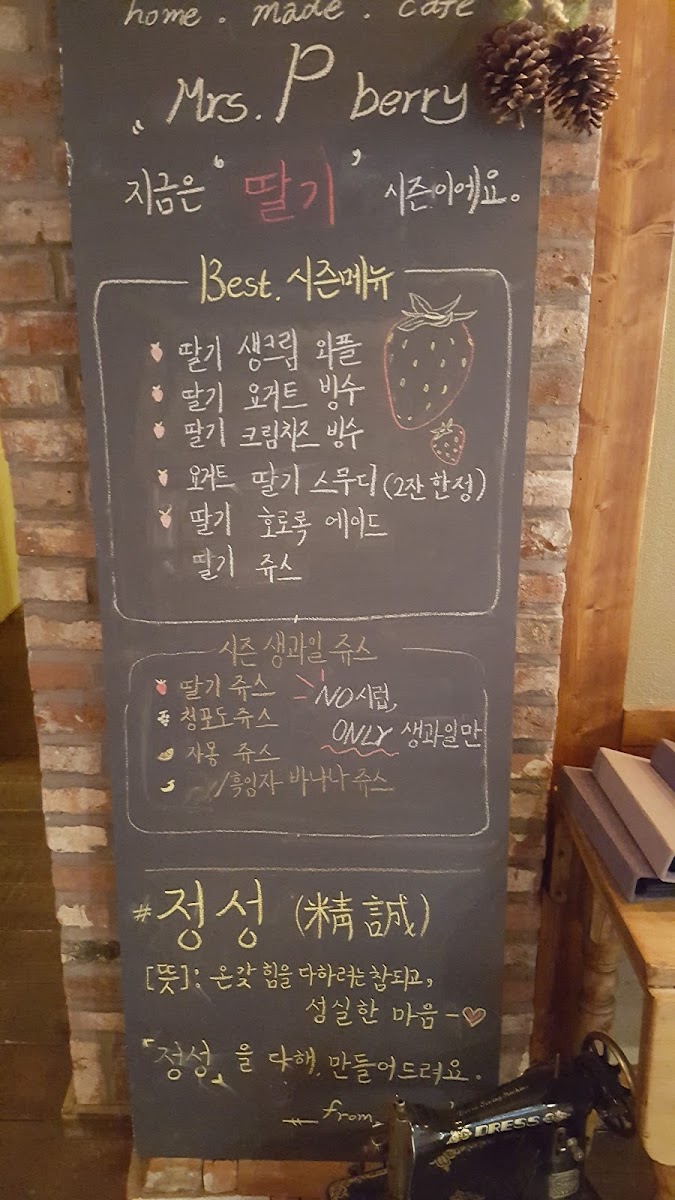 home . made . cafe
Mrs. P berry
지금은 "딸기" 시즌이에요.
Best. 시즌메뉴
딸기 생크림 와플
딸기 요거트 빙수
딸기 크림치즈 빙수
요거트 딸기 스무디 (2잔 한정)
딸기 호로록 에이드
딸기 쥬스
시즌 생과일 쥬스
딸기 쥬스 NO시럽,
청포도쥬스 ONLY 생과일만
자몽 쥬스
/흑임자 바나나 쥬스
#정성 (精誠)
[뜻]: 온갖 힘을 다하려는 참되고,
성실한 마음-♡
「정성」을 다해, 만들어드려요.
from.
DRESS